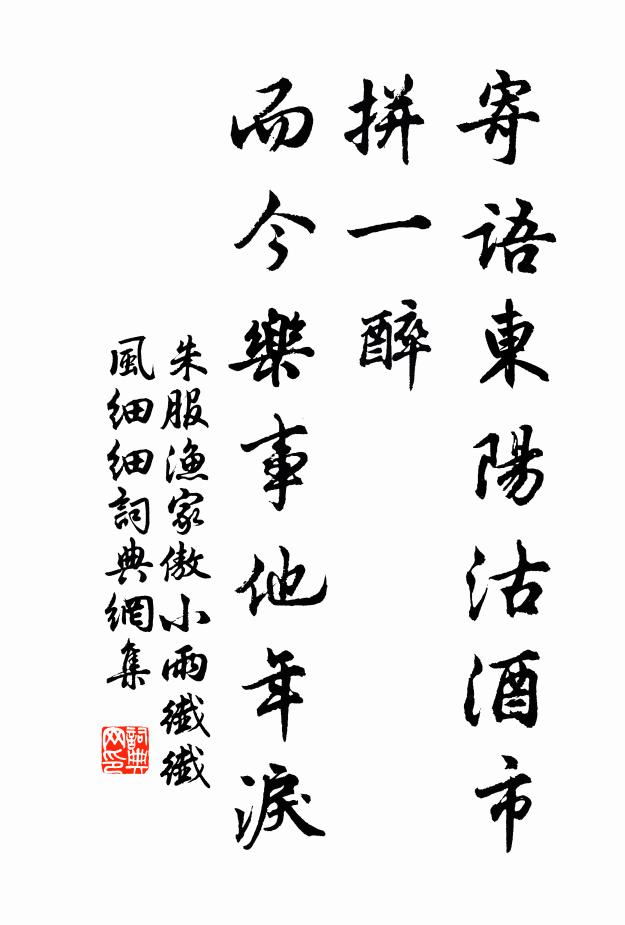 寄語東陽沽酒市
拼一醉
而今樂事他年淚
朱服漁家傲小雨纖纖
風細細詞典網集
詞典
网印